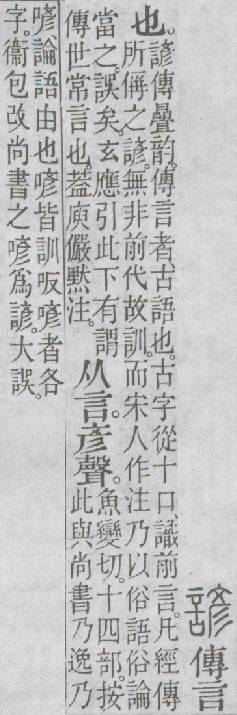 諺傳言
也。諺傳曡韵。傳言者、古語也。古字從十口、識前言。凡經傳
所偁之諺。無非前代故訓。而宋人作注乃以俗語俗論
當之。誤矣。玄應引此下有謂
傳世常言也。葢庾儼默注。
从言。彥聲。
魚變切。十四部。按
此與尚書乃逸乃
喭、論語由也喭皆訓昄喭者各
字。衞包改尚書之喭爲諺。大誤。